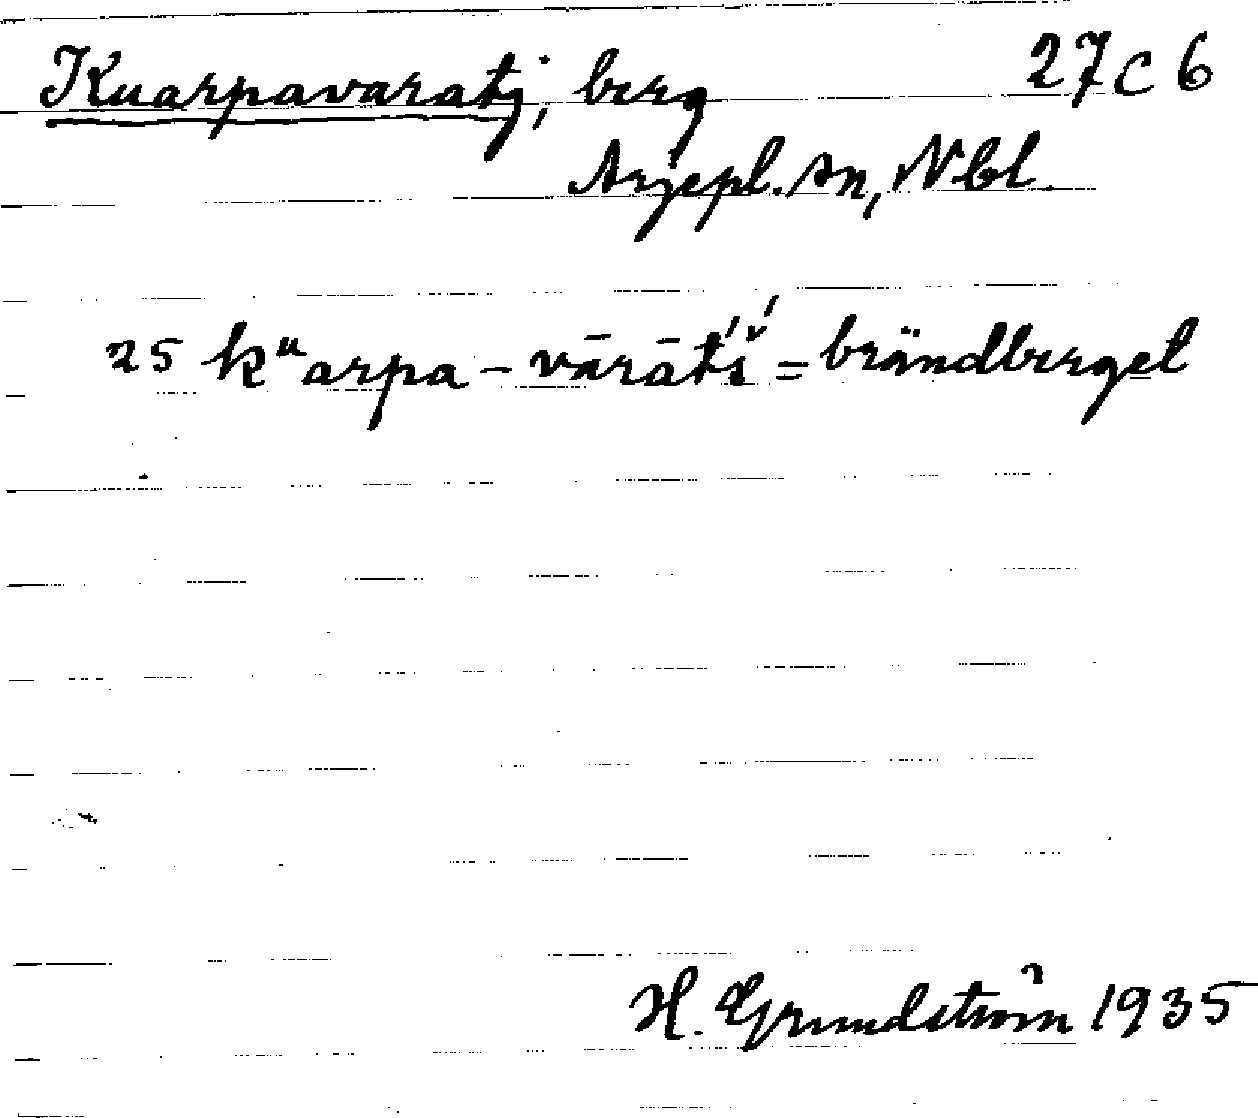 Kuarpavaratj, berg 27 C 6
Arjepl. sn, Nbl.
25 kᵘarpa-vārāt́š́ = brändberget
H. Grundström 1935